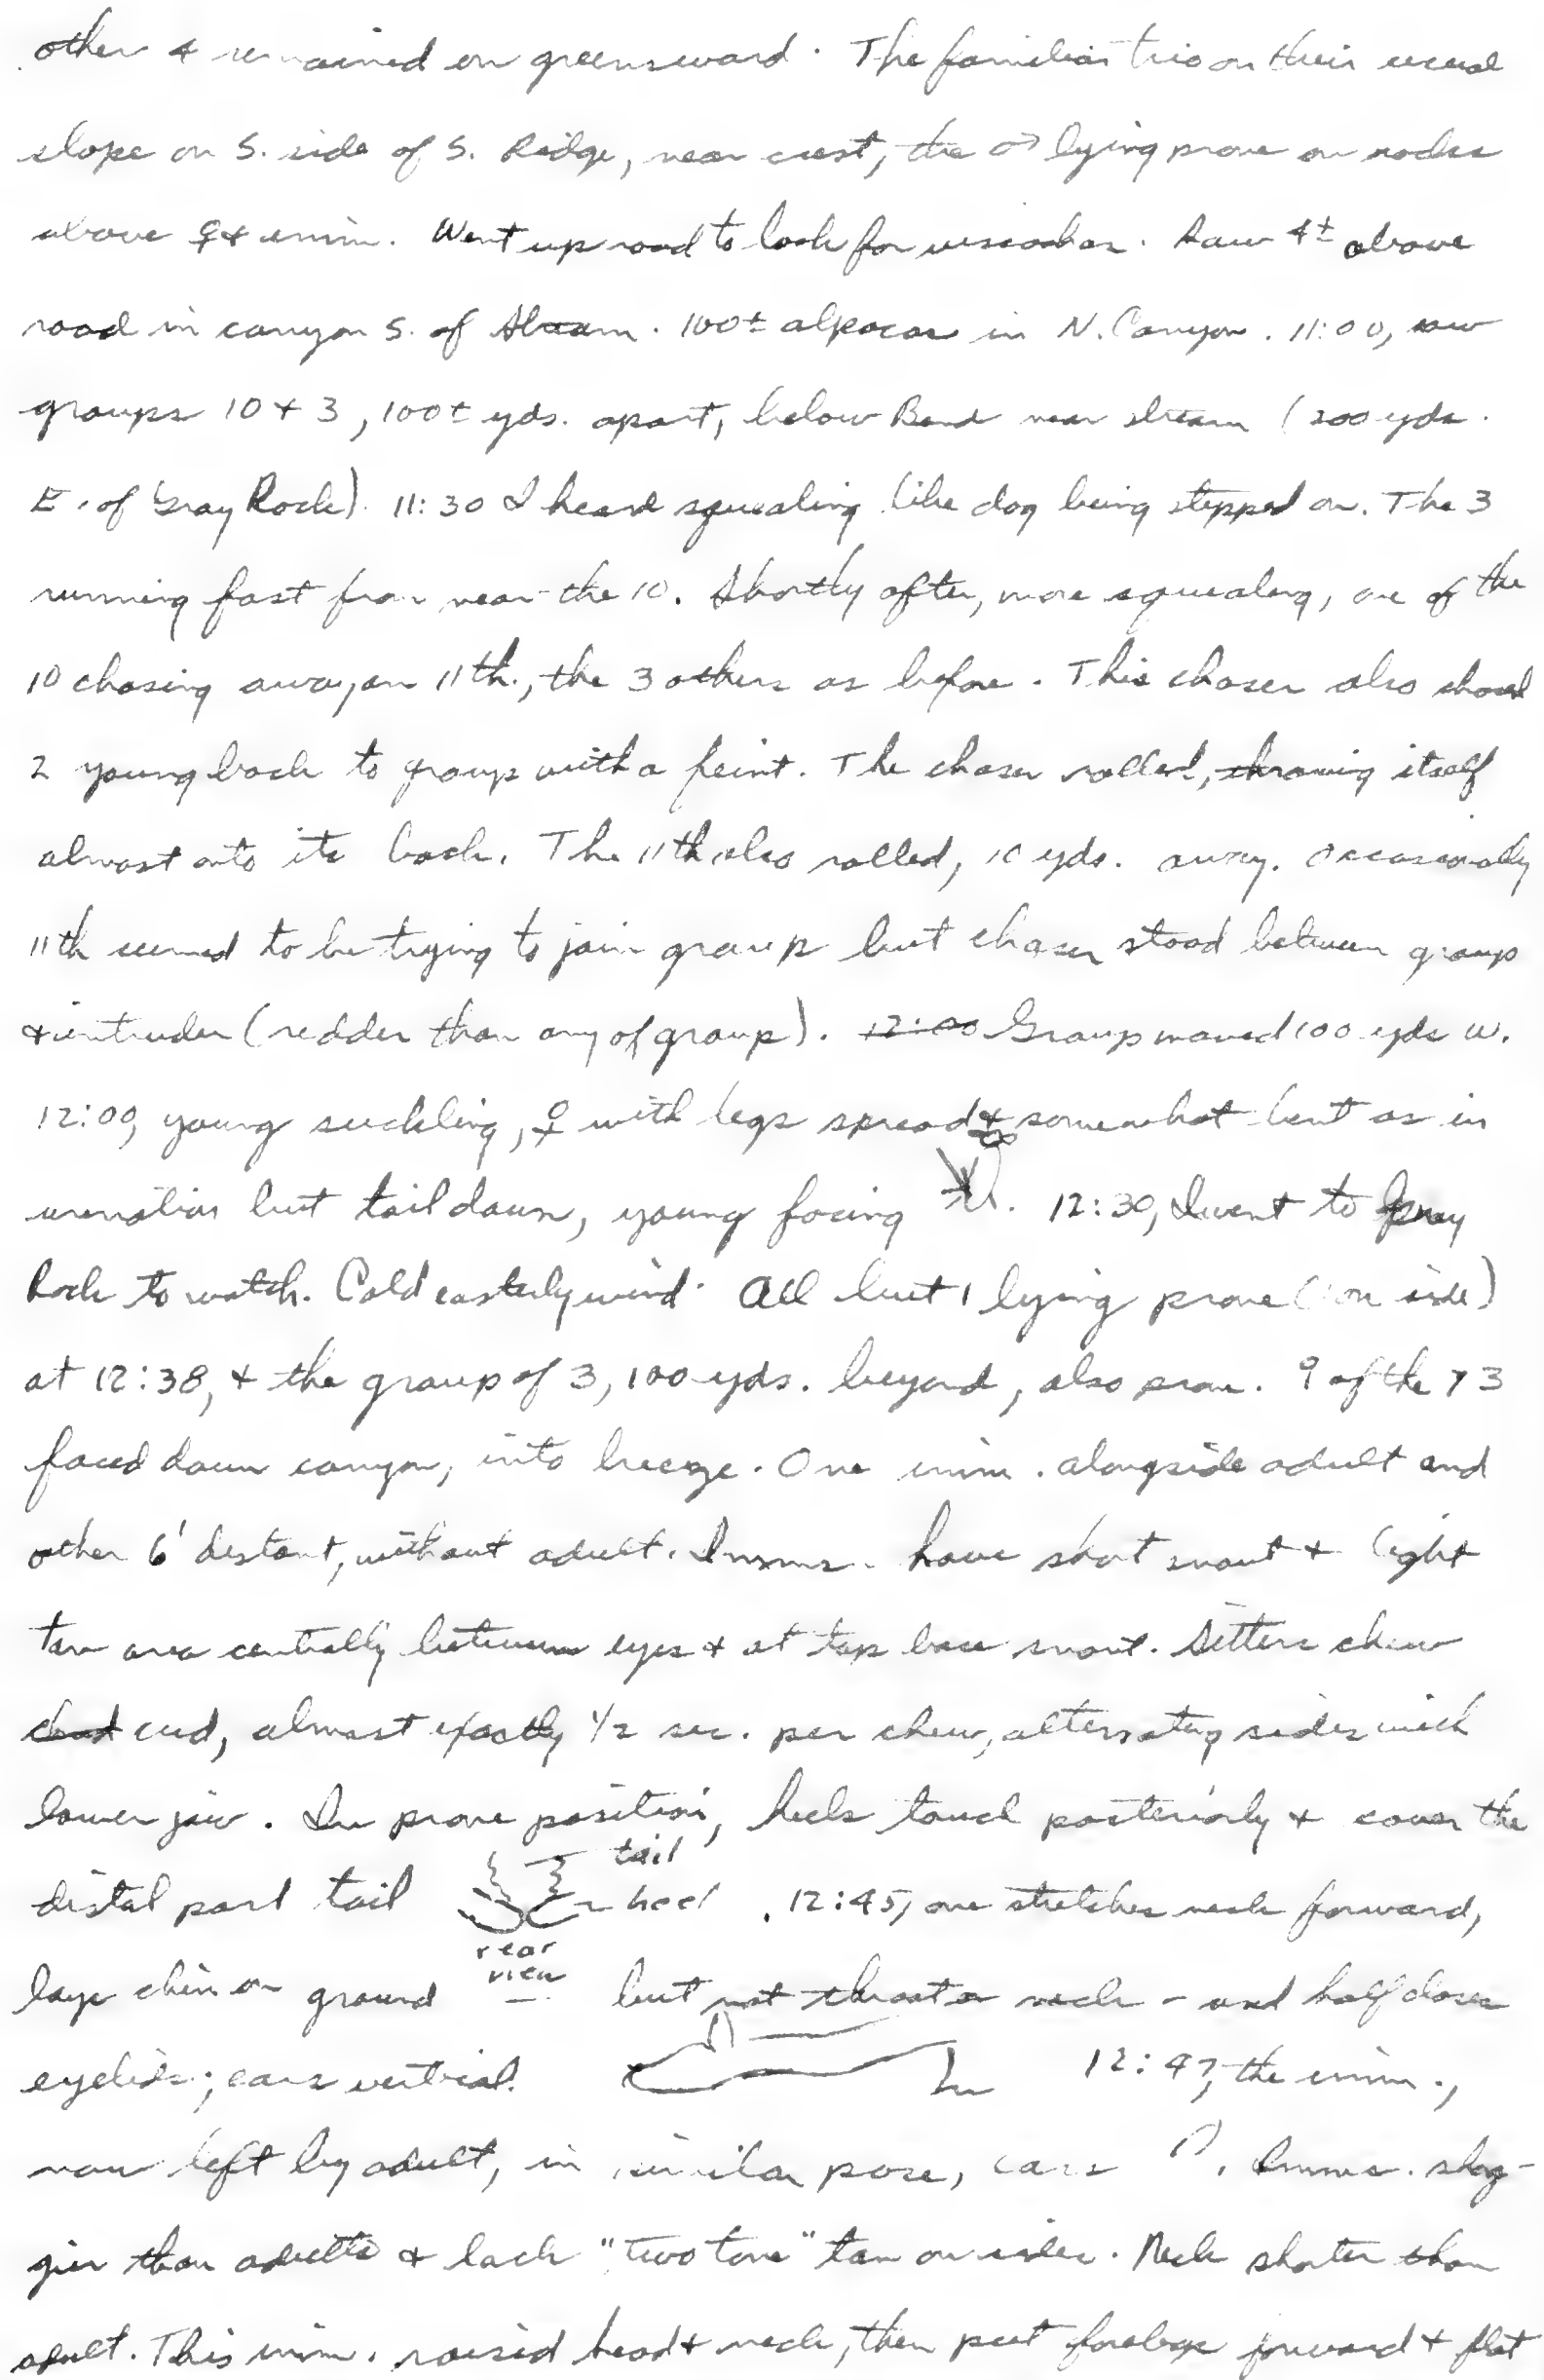 other 4 remained on greensward. The familiar trio on their usual
slope on S. side of S. Ridge, near crest, the ♂ lying prone on rocks
above ♀ & imm. Went up road to look for viscachas. Saw 4± above
road in canyon S. of stream. 100± alpacas in N. Canyon. 11:00, saw
groups 10 + 3, 100± yds. apart, below Bend near stream (200 yds.
E. of Gray Rock). 11:30 I heard squealing like dog being stepped on. The 3
running fast from near the 10. Shortly after, more squealing, one of the
10 chasing away an 11th., the 3 others as before. This chaser also chased
2 young back to group with a feint. The chaser rolled, throwing itself
almost onto its back. The 11th also rolled, 10 yds. away. Occasionally
11th seemed to be trying to join group but chaser stood between group
& intruder (redder than any of group). 12:00 Group moved 100 yds W.
12:00, young suckling, ♀ with legs spread & somewhat bent as in
urination but tail down, young facing . 12:30, I went to Gray
Rock to watch. Cold easterly wind. All but 1 lying prone (1 on side)
at 12:38, & the group of 3, 100 yds. beyond, also prone. 9 of the 13
faced down canyon, into breeze. One imm. alongside adult and
other 6' distant, without adult. Imms. have short snout & light
tan area centrally between eyes & at top base snout. Sitters chew
cud, almost exactly 1/2 sec. per chew, alternating sides with
lower jaw. In prone position, heels touch posteriorly & cover the
tail
distal part tail heel . 12:45, one stretches neck forward,
rear
view
lays chin on ground but not throat or neck - and half closes
eyelids; ears vertical. 12:47, the imm.,
now left by adult, in similar pose, ears . Imms. shag-
gier than adults & lack "two tone" tan on sides. Neck shorter than
adult. This imm. raised head & neck, then put forelegs forward & flat